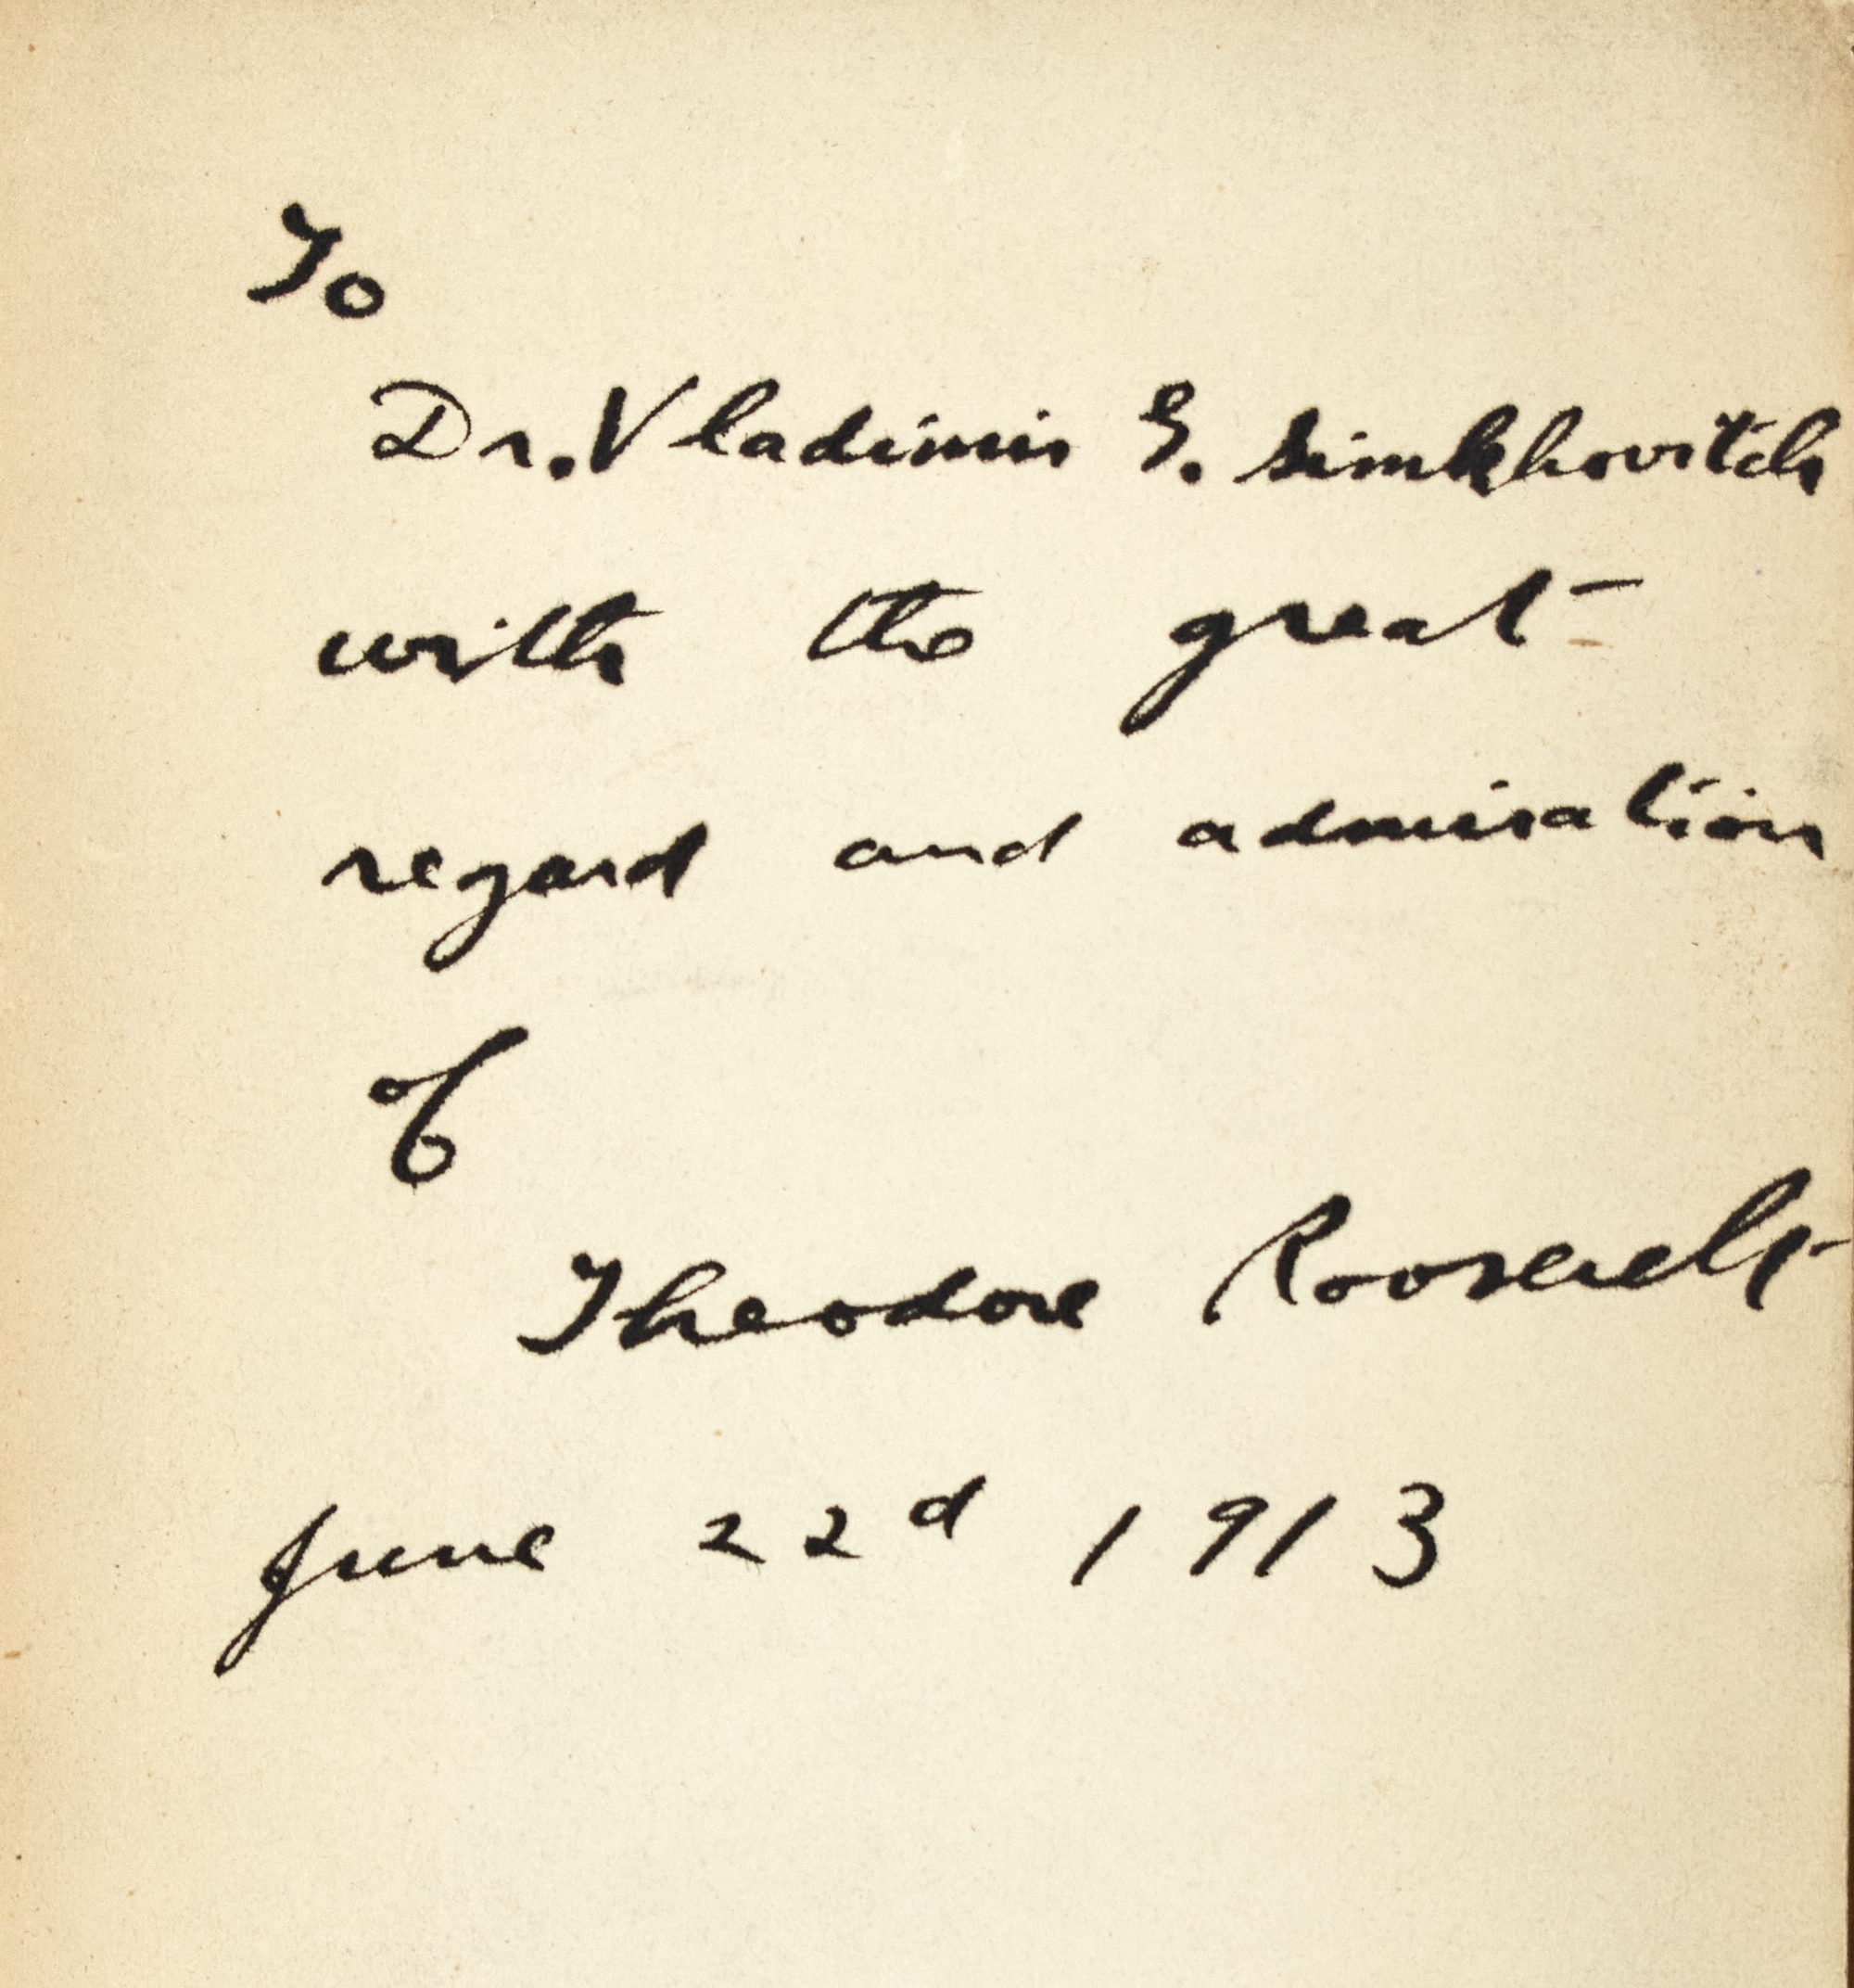 To
Dr. Vladimir G. Simkhovitch
with the great
regard and admiration
of
Theodore Roosevelt
June 22d 1913